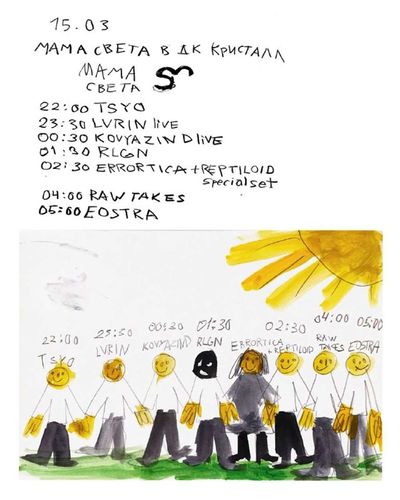 15.03
МАМА СВЕТА В ДК КРИСТАЛЛ
МАМА
СВЕТА
22:00 TSYO
23:30 LVRIN live
00:30 KOVYAZIN D live
01:30 RLGN
02:30 ERRORTICA + REPTILOID
special set
04:00 RAW TAKES
05:00 EOSTRA
22:00 23:30 00:30 01:30 02:30 04:00 05:00
TSYO LVRIN KOVYAZIN D RLGN ERRORTICA + REPTILOID RAW TAKES EOSTRA